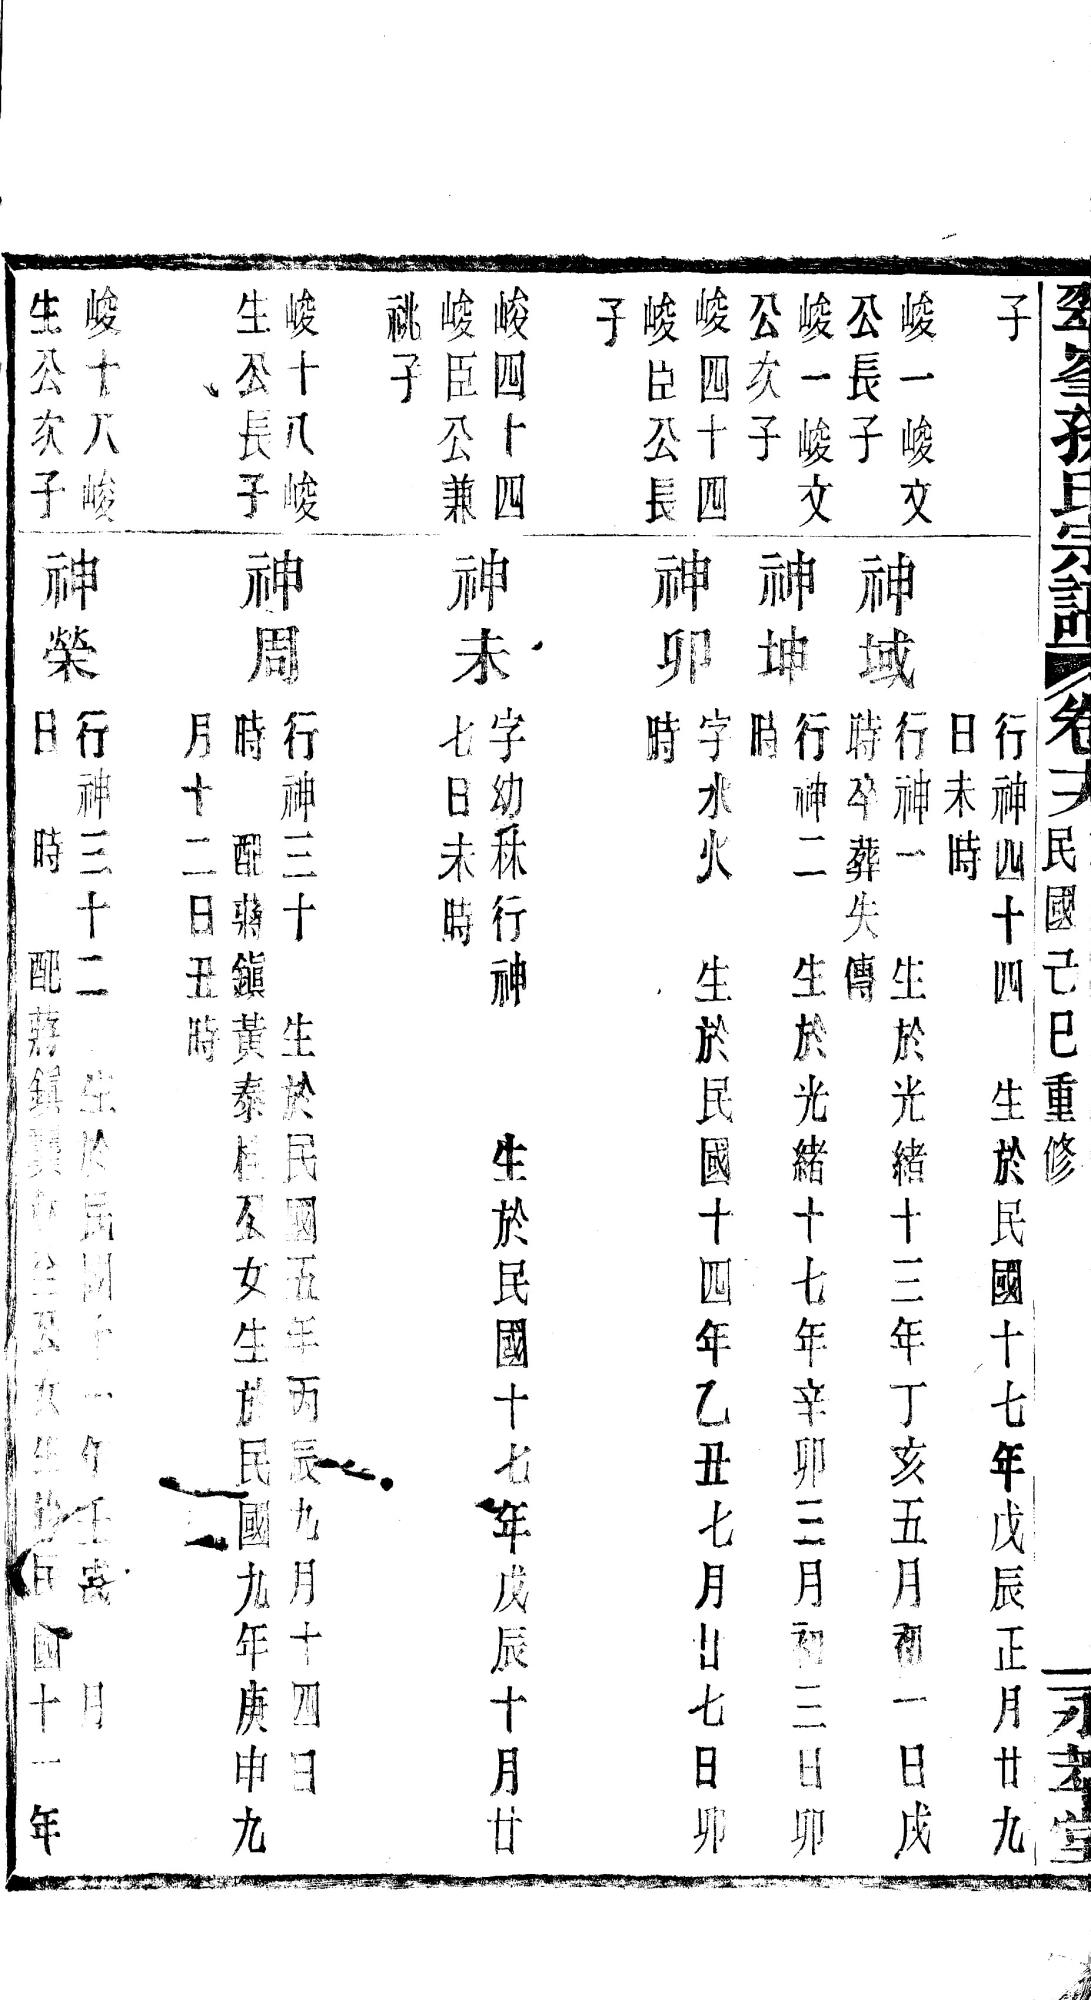 氏宗譜
卷
民國己巳重修
永孝堂
子
行神四十四　生於民國十七年戊辰正月廿九
日未時
峻一峻文
公長子
神域
行神一　生於光緒十三年丁亥五月初一日戌
時卒葬失傳
峻一峻文
公次子
神坤
行神二　生於光緒十七年辛卯三月初三日卯
時
峻四十四
峻臣公長
子
神卯
字水火　生於民國十四年乙丑七月廿七日卯
時
峻四十四
峻臣公兼
祧子
神未
字幼秝行神　生於民國十七年戊辰十月廿
七日未時
峻十八峻
生公長子
神周
行神三十　生於民國五年丙辰九月十四日
時　配蔣鎮黃泰桂公女生於民國九年庚申九
月十二日丑時
峻十八峻
生公次子
神榮
行神三十二　生於民國十一年壬　月
日　時　配蔣鎮　公女生於民國十一年